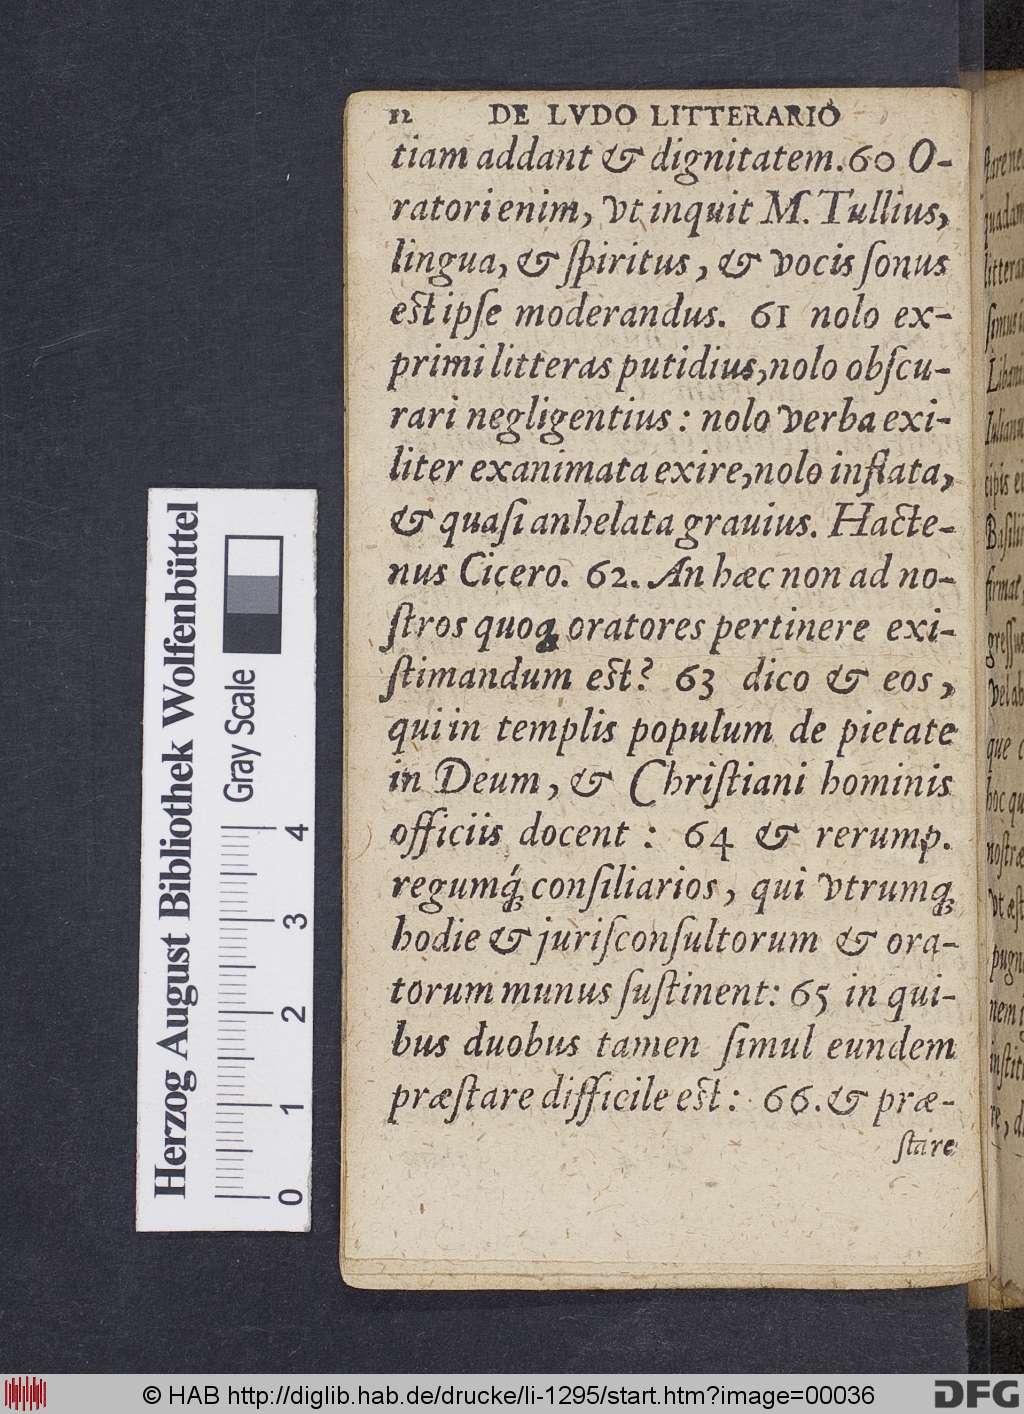 12 DE LVDO LITTERARIO
tiam addant & dignitatem. 60 O-
ratori enim, vt inquit M. Tullius,
lingua, & ſpiritus, & vocis ſonus
est ipſe moderandus. 61 nolo ex-
primi litteras putidius, nolo obſcu-
rari negligentius: nolo verba exi-
liter exanimata exire, nolo inflata,
& quaſi anhelata grauius. Hacte-
nus Cicero. 62. An hæc non ad no-
ſtros quoq; oratores pertinere exi-
ſtimandum est? 63 dico & eos,
qui in templis populum de pietate
in Deum, & Chriſtiani hominis
officiis docent: 64 & rerump.
regumq́; conſiliarios, qui vtrumq;
hodie & juriſconſultorum & ora-
torum munus ſuſtinent: 65 in qui-
bus duobus tamen ſimul eundem
præſtare difficile est: 66. & præ-
ſtare
Herzog August Bibliothek Wolfenbüttel
Gray Scale
0 1 2 3 4
ſtare ne
quadam
litterar
ſimus i
Libani
Iulianu
cipis ei
Baſili
firmat,
greſſus
Vel ab
que c
hoc qu
noſtræ
Vt æſt
pugn
nem i
inſtit
re, d
© HAB http://diglib.hab.de/drucke/li-1295/start.htm?image=00036
DFG